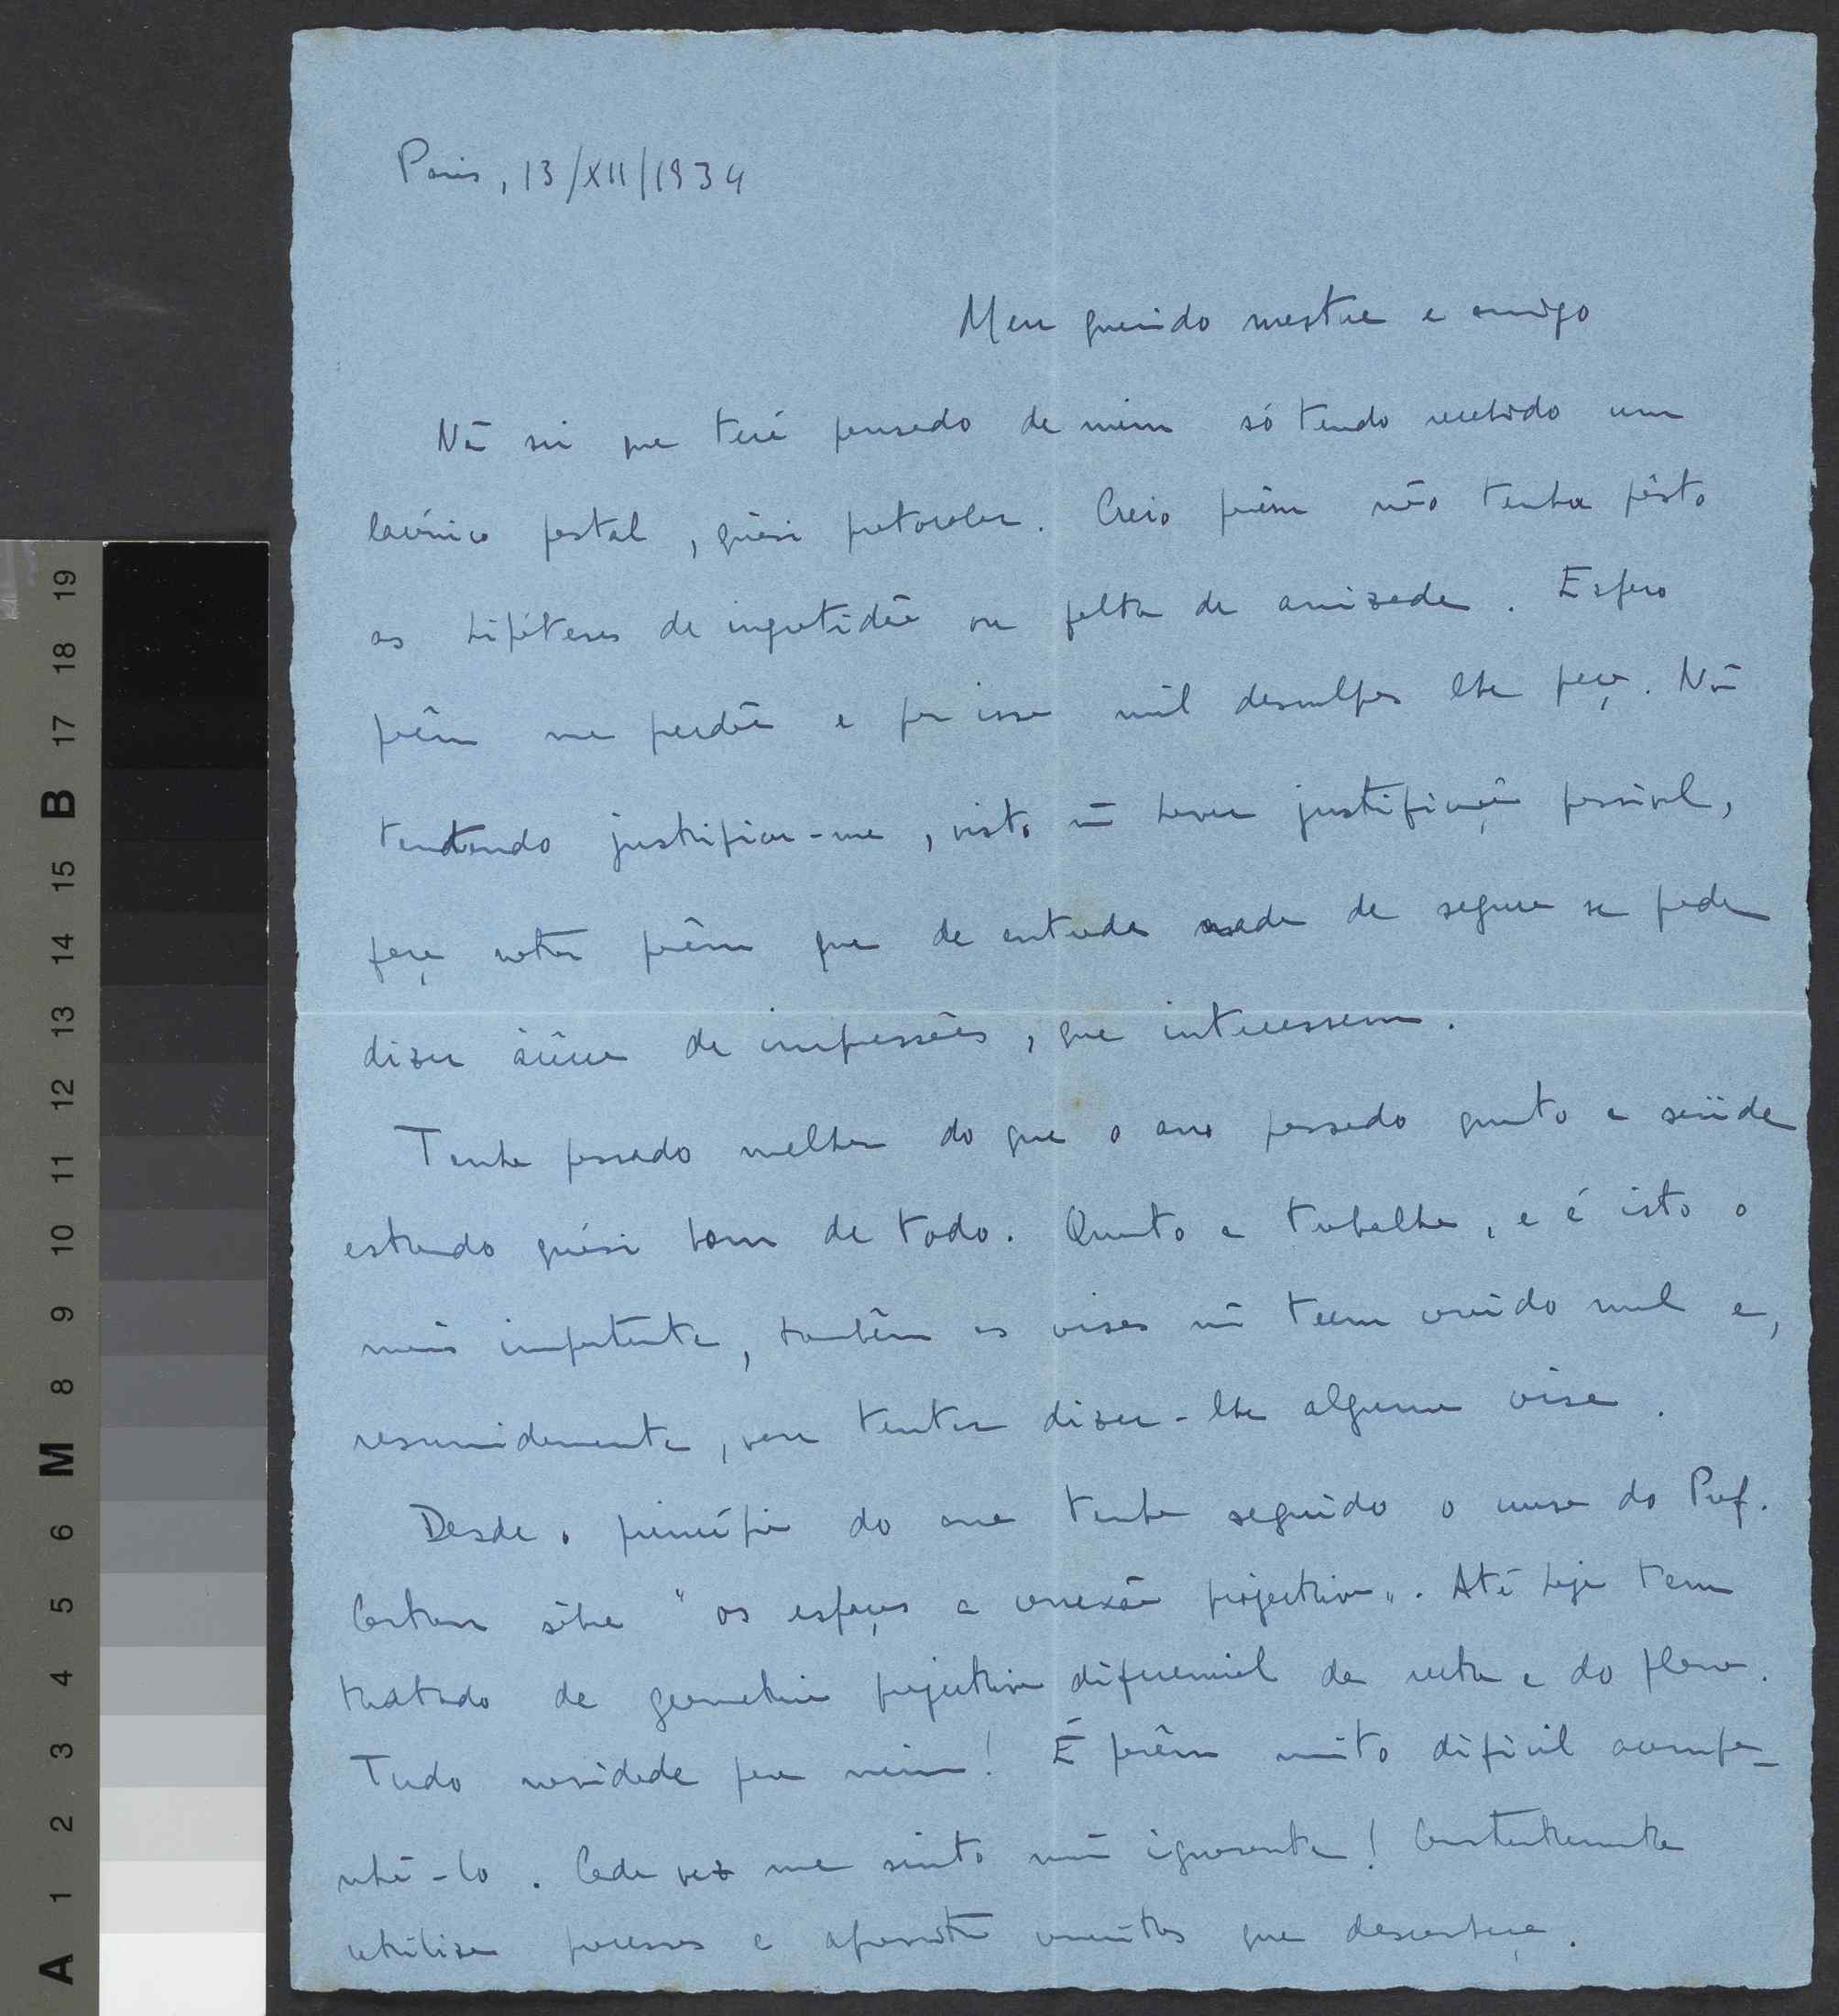 Paris, 13/XII/1934
Meu querido mestre e amigo
Não sei que terá pensado de mim só tendo recebido um
lacónico postal, quàsi protocolar. Creio porêm não tenha pôsto
as hipóteses de ingratidão ou falta de amizade. Espero
porêm me perdôe e por isso mil desculpas lhe peço. Não
tentando justificar-me, visto não haver justificação possível,
faço notar porêm que de entrada nada de seguro se pode
dizer àcêrca de impressões, que interessem.
Tenho passado melhor do que o ano passado quanto a saúde
estando quàsi bom de todo. Quanto a trabalho, e é isto o
mais importante, tambêm as coisas não teem corrido mal e,
resumidamente, vou tentar dizer-lhe alguma coisa.
Desde o princípio do ano tenho seguido o curso do Prof.
Cartan sôbre "os espaços a conexão projectiva". Até hoje tem
tratado de geometria projectiva diferencial da recta e do plano.
Tudo novidade para mim! É porêm muito difícil acompa-
nhá-lo. Cada vez me sinto mais ignorante! Constantemente
utiliza processos e apresenta que desconheço.
A 1 2 3 4 5 6 M 8 9 10 11 12 13 14 15 B 17 18 19